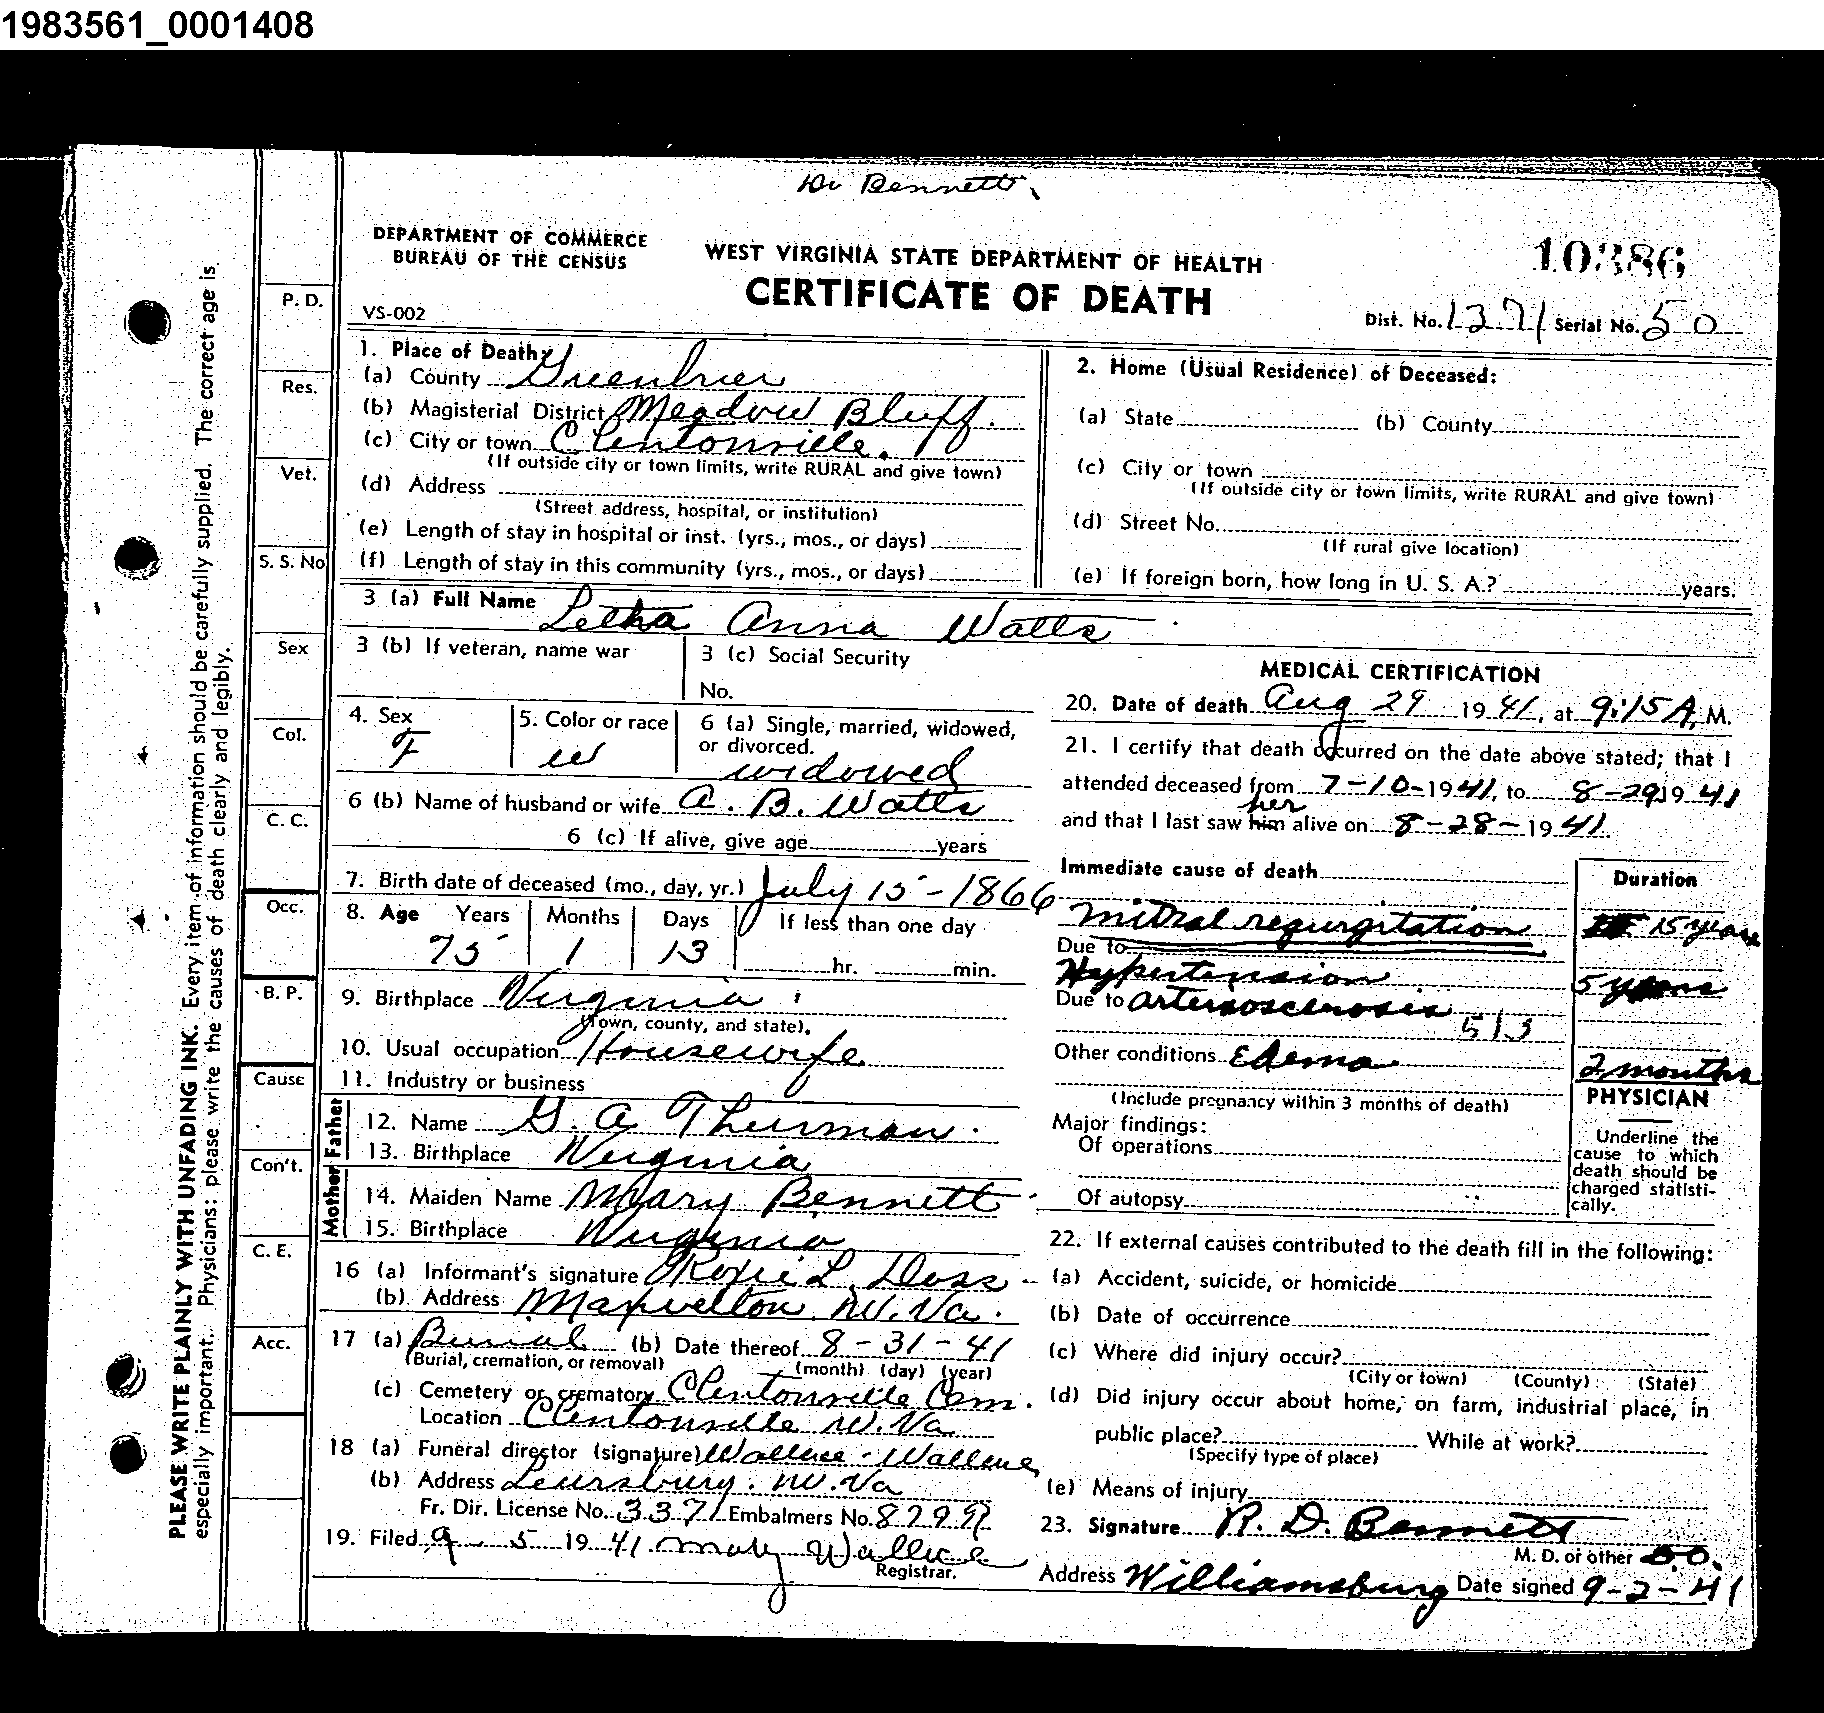 1983561_0001408
Dr Bennett
DEPARTMENT OF COMMERCE
BUREAU OF THE CENSUS
VS-002
WEST VIRGINIA STATE DEPARTMENT OF HEALTH
CERTIFICATE OF DEATH
10386
Dist. No. 1371 Serial No. 50
PLEASE WRITE PLAINLY WITH UNFADING INK. Every item of information should be carefully supplied. The correct age is
especially important. Physicians: please write the causes of death clearly and legibly.
P. D.
Res.
Vet.
S. S. No
Sex
Col.
C. C.
Occ.
B. P.
Cause
Con't.
C. E.
Acc.
1. Place of Death:
(a) County Greenbrier
(b) Magisterial District Meadow Bluff.
(c) City or town Clintonville.
(If outside city or town limits, write RURAL and give town)
(d) Address
(Street address, hospital, or institution)
(e) Length of stay in hospital or inst. (yrs., mos., or days)
(f) Length of stay in this community (yrs., mos., or days)
2. Home (Usual Residence) of Deceased:
(a) State (b) County
(c) City or town
(If outside city or town limits, write RURAL and give town)
(d) Street No.
(If rural give location)
(e) If foreign born, how long in U. S. A.? years.
3 (a) Full Name Letha Anna Watts
3 (b) If veteran, name war
3 (c) Social Security
No.
4. Sex
F
5. Color or race
W
6 (a) Single, married, widowed,
or divorced.
widowed
6 (b) Name of husband or wife A. B. Watts
6 (c) If alive, give age years
7. Birth date of deceased (mo., day, yr.) July 15-1866
8. Age Years Months Days If less than one day
75 1 13 hr. min.
9. Birthplace Virginia
(Town, county, and state).
10. Usual occupation Housewife
11. Industry or business
Father
12. Name G. A Thurman.
13. Birthplace Virginia
Mother
14. Maiden Name Mary Bennett
15. Birthplace Virginia
16 (a) Informant's signature Roxie L. Doss
(b) Address Maxwelton W. Va.
17 (a) Burial (b) Date thereof 8-31-41
(Burial, cremation, or removal) (month) (day) (year)
(c) Cemetery or crematory Clintonville Cem.
Location Clintonville W. Va
18 (a) Funeral director (signature) Wallace - Wallace
(b) Address Lewisburg. W. Va
Fr. Dir. License No. 3371 Embalmers No.
19. Filed 9-5 1941 Wallace
Registrar.
MEDICAL CERTIFICATION
20. Date of death Aug 29 1941, at 9:15 A. M.
21. I certify that death occurred on the date above stated; that I
attended deceased from 7-10-1941, to 8-29 1941
her
and that I last saw him alive on 8-28-1941
Immediate cause of death Duration
Mitral regurgitation 15 years
Due to
Hypertension 5 years
Due to arteriosclerosis
513
Other conditions Edema 2 months
(Include pregnancy within 3 months of death)
Major findings:
Of operations
Of autopsy
PHYSICIAN
Underline the
cause to which
death should be
charged statisti-
cally.
22. If external causes contributed to the death fill in the following:
(a) Accident, suicide, or homicide
(b) Date of occurrence
(c) Where did injury occur?
(City or town) (County) (State)
(d) Did injury occur about home, on farm, industrial place, in
public place? While at work?
(Specify type of place)
(e) Means of injury
23. Signature R. D. Bennett
M. D. or other DO.
Address Williamsburg Date signed 9-2-41